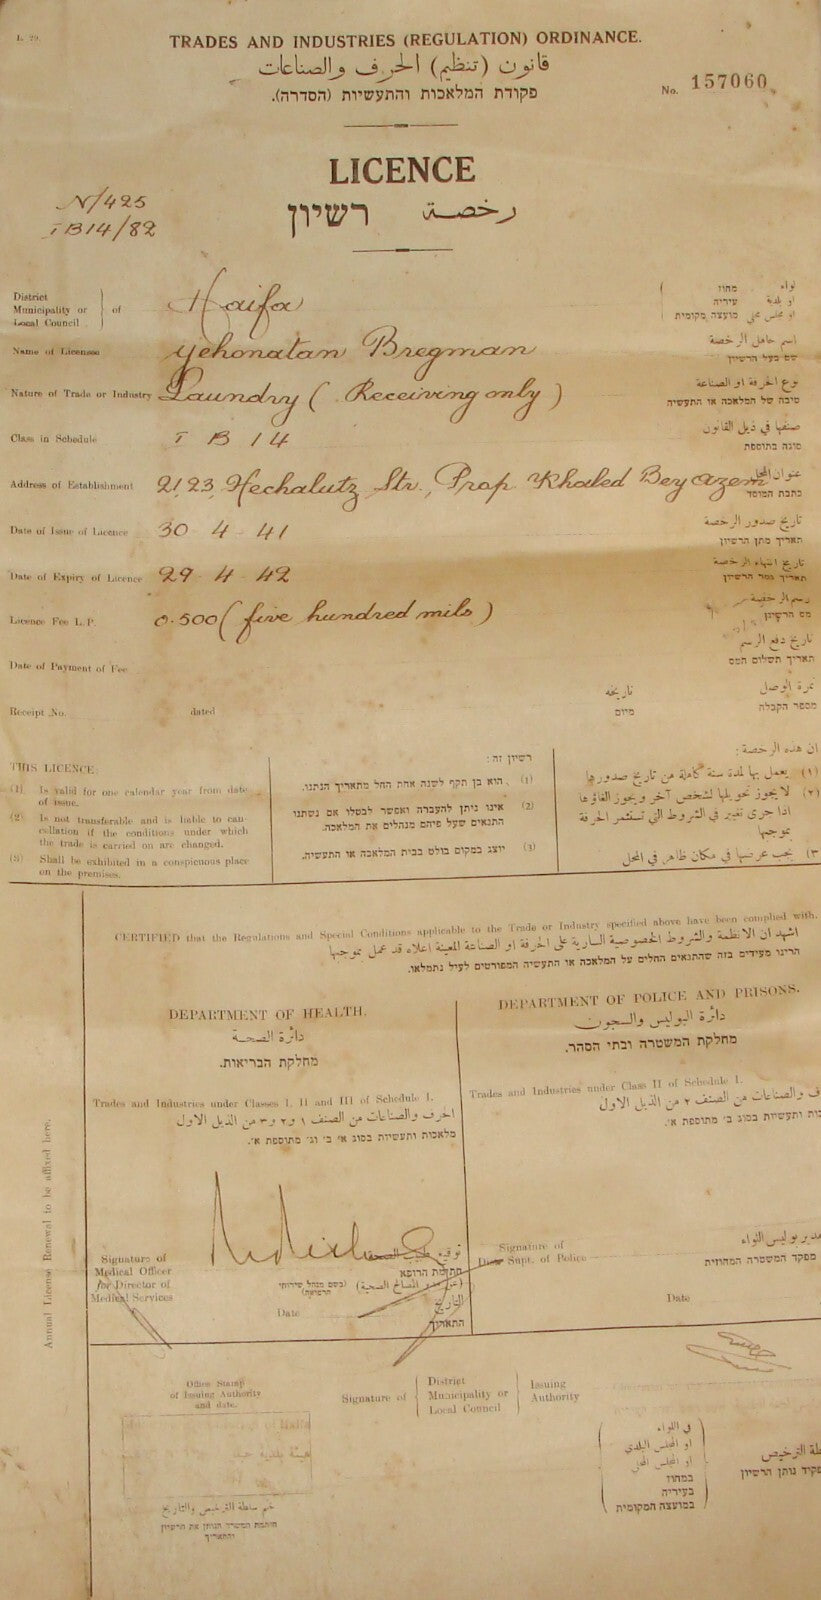 L. 29.
TRADES AND INDUSTRIES (REGULATION) ORDINANCE.
قانون (تنظيم) الحرف والصناعات
פקודת המלאכות והתעשיות (הסדרה).
No. 157060
LICENCE
רשיון رخصة
N/425
I B 14/82
District
Municipality or of
Local Council
Haifa
لواء מחוז
او بلدية עיריה
او مجلس محلي מועצה מקומית
Name of Licensee Yehonatan Bregman
اسم حامل الرخصة
שם בעל הרשיון
Nature of Trade or Industry Laundry ( Receiving only )
نوع الحرفة او الصناعة
טיבה של המלאכה או התעשיה
Class in Schedule I B 14
صنفها في ذيل القانون
סוגה בתוספת
Address of Establishment 21,23, Hechalutz Str., Prop. Khaled Bey Azem
عنوان المحل
כתבת המוסד
Date of Issue of Licence 30 - 4 - 41
تاريخ صدور الرخصة
תאריך מתן הרשיון
Date of Expiry of Licence 29 - 4 - 42
تاريخ انتهاء الرخصة
תאריך גמר הרשיון
Licence Fee L.P. 0.500 ( five hundred mils )
رسم الرخصة
מס הרשיון
Date of Payment of Fee
تاريخ دفع الرسم
תאריך תשלום המס
Receipt No. dated
تاريخه
מיום
نمرة الوصل
מספר הקבלה
THIS LICENCE:
(1) Is valid for one calendar year from date
of issue.
(2) Is not transferable and is liable to can-
cellation if the conditions under which
the trade is carried on are changed.
(3) Shall be exhibited in a conspicuous place
on the premises.
רשיון זה:
(1) הוא בן תקף לשנה אחת החל מתאריך הנתנו.
(2) אינו ניתן להעברה ואפשר לבטלו אם נשתנו
התנאים שעל פיהם מנהלים את המלאכה.
(3) יוצג במקום בולט בבית המלאכה או התעשיה.
ان هذه الرخصة:
(١) يعمل بها لمدة سنة كاملة من تاريخ صدورها
(٢) لا يجوز تحويلها لشخص آخر ويجوز الغاؤها
اذا جرى تغيير في الشروط التي تستثمر الحرفة
بموجبها
(٣ يجب عرضها في مكان ظاهر في المحل
CERTIFIED that the Regulations and Special Conditions applicable to the Trade or Industry specified above have been complied with.
اشهد ان الانظمة والشروط الخصوصية السارية على الحرفة او الصناعة المعينة اعلاه قد عمل بموجبها
הרינו מעידים בזה שהתנאים החלים על המלאכה או התעשיה המפורטים לעיל נתמלאו.
DEPARTMENT OF HEALTH.
دائرة الصحة
מחלקת הבריאות.
Trades and Industries under Classes I, II and III of Schedule I.
الحرف والصناعات من الصنف ١ و٢ و٣ من الذيل الاول
מלאכות ותעשיות בסוג א׳ ב׳ וג׳ מתוספת א׳.
Signature of
Medical Officer
for Director of
Medical Services
توقيع طبيب الصحة
חתימת הרופא
(عن مدير المصالح الصحية)
(בשם מנהל שירותי
הרפואה)
Date
التاريخ
התאריך
DEPARTMENT OF POLICE AND PRISONS.
دائرة البوليس والسجون
מחלקת המשטרה ובתי הסהר.
Trades and Industries under Class II of Schedule I.
ف والصناعات من الصنف ٢ من الذيل الاول
ות ותעשיות בסוג ב׳ מתוספת א׳.
Signature of
Dist. Supt. of Police
مدير بوليس اللواء
מפקד המשטרה המחוזית
Date
Annual License Renewal to be affixed here.
Office Stamp
of Issuing Authority
and date.
ختم سلطة الترخيص والتاريخ
חותמת המשרד הנותן את הרשיון
והתאריך
Signature of
District
Municipality or
Local Council
Issuing
Authority
في اللواء
او المجلس البلدي
او المجلس المحلي
במחוז
בעיריה
במועצה המקומית
طة الترخيص
פקיד נותן הרשיון